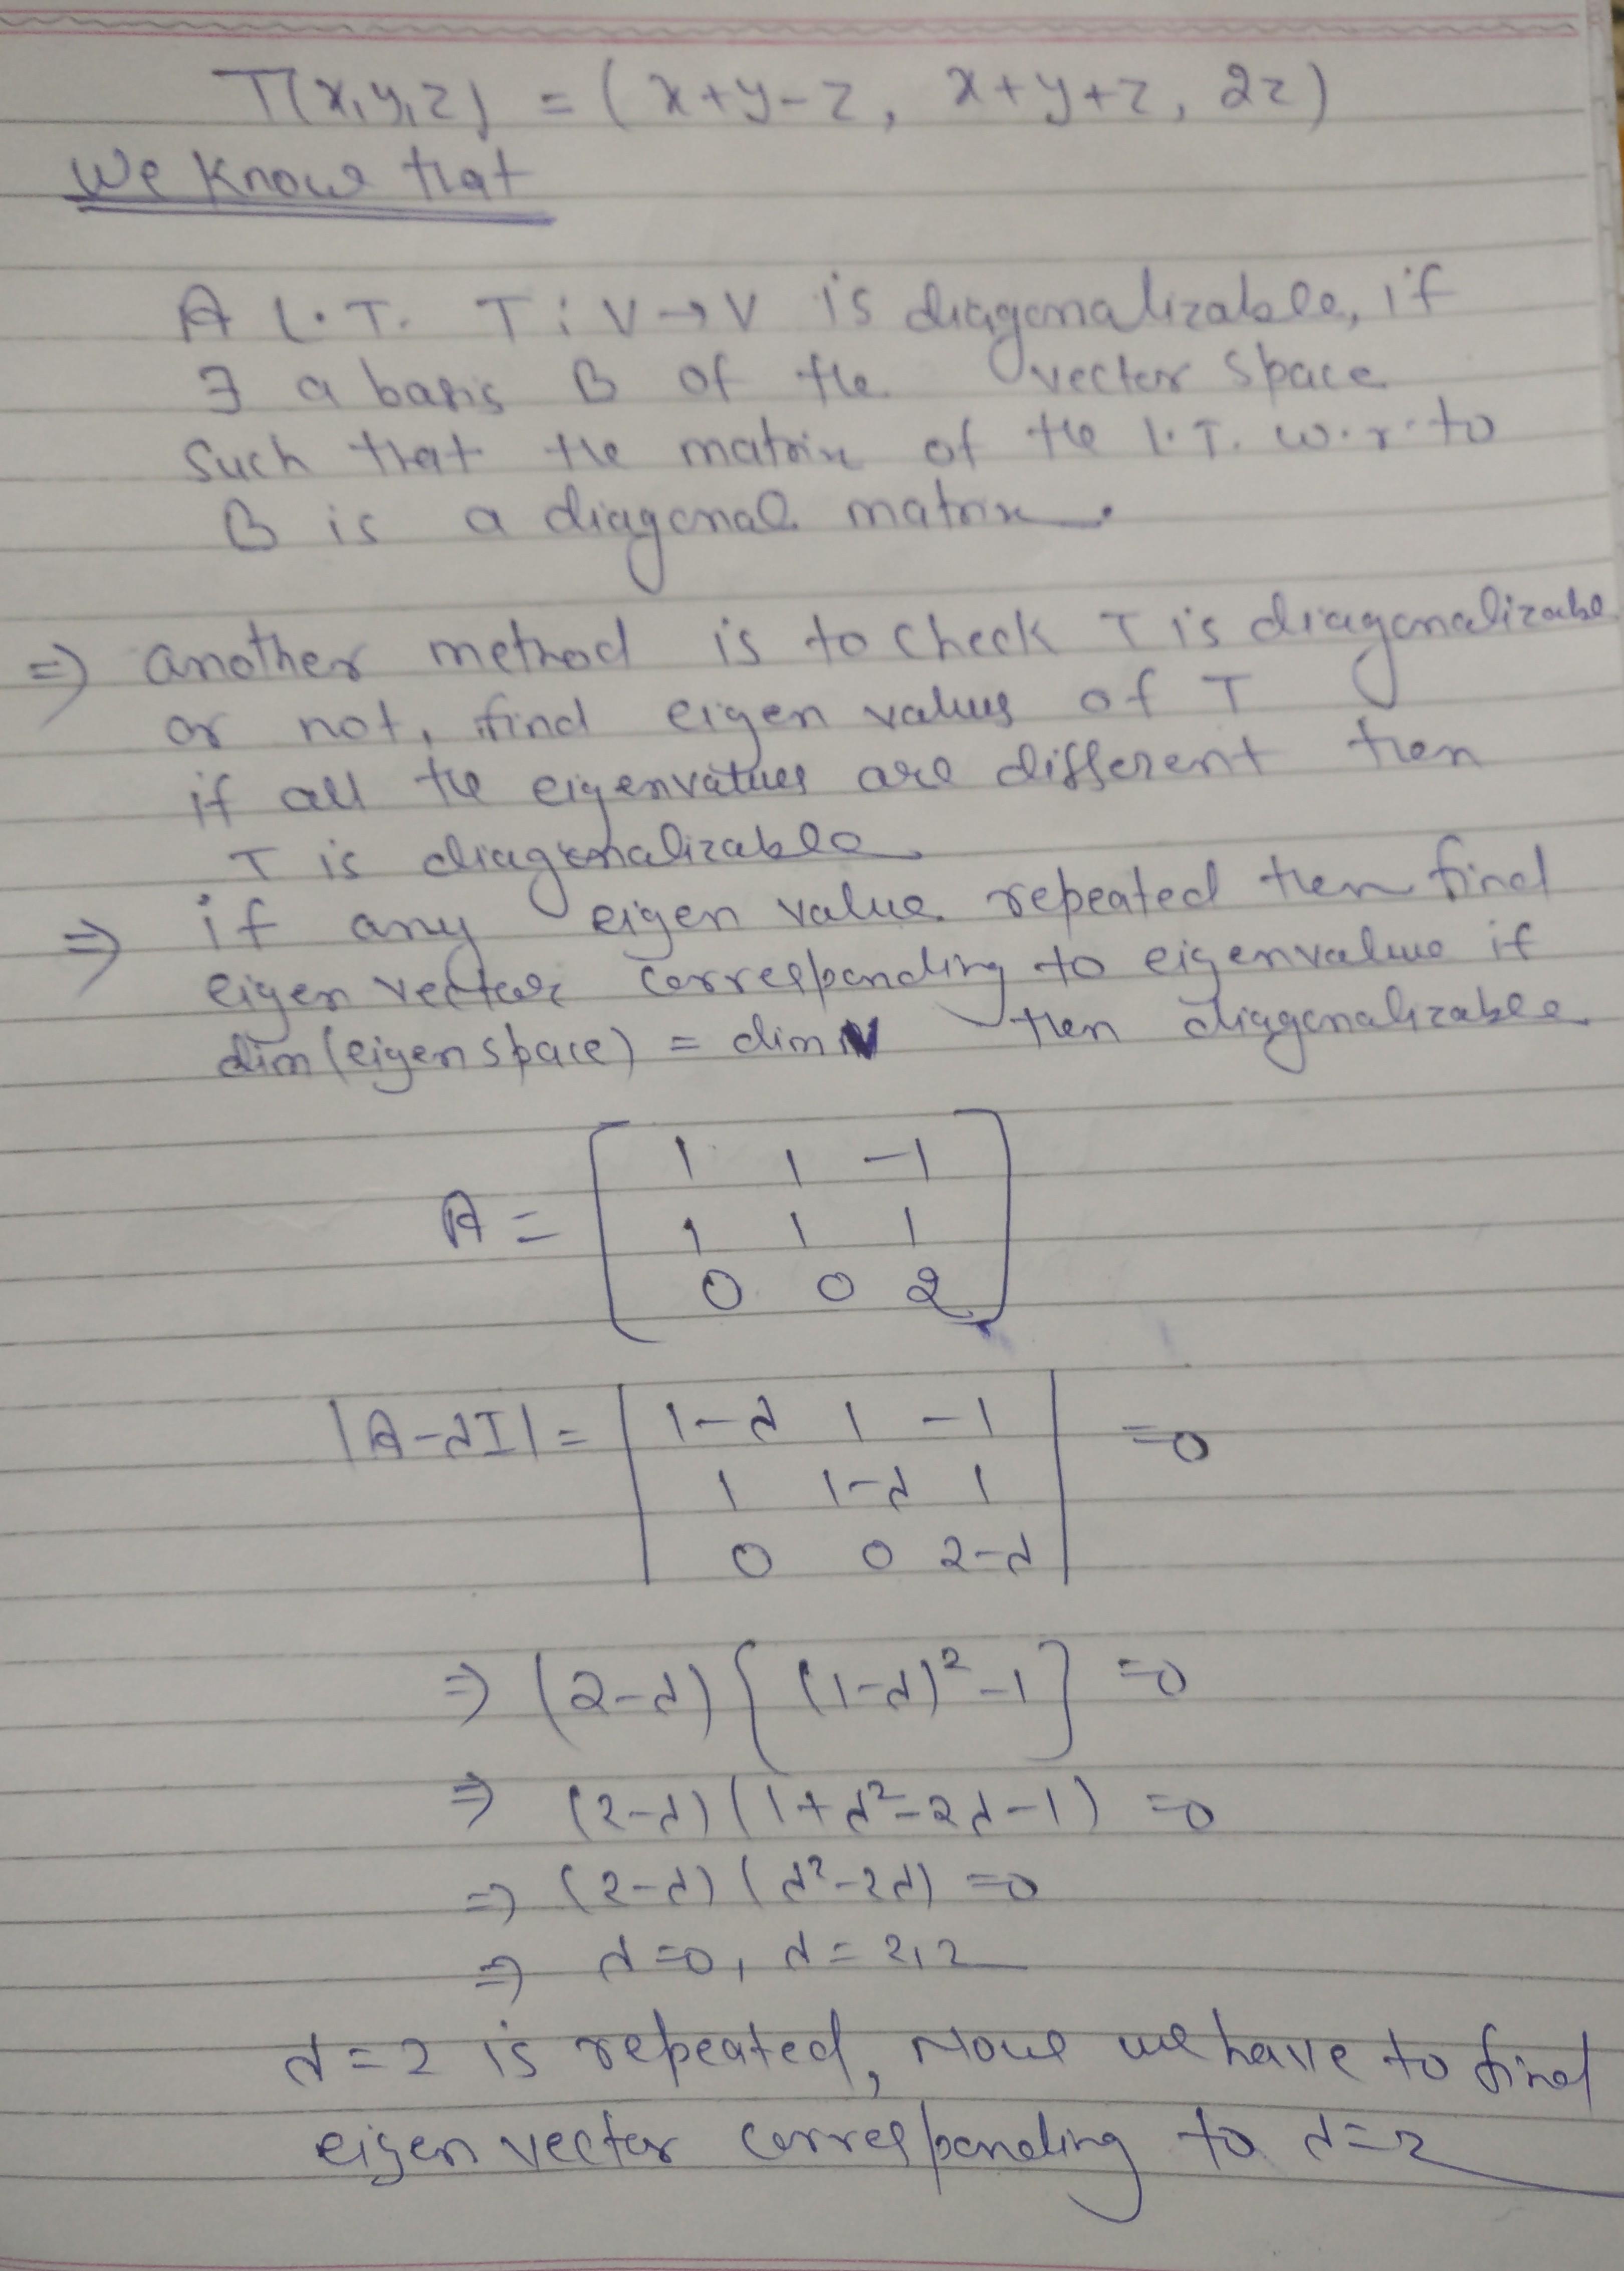 T(x,y,z) = (x+y-z, x+y+z, 2z)
We know that
A L.T. T: V→V is diagonalizable, if
∃ a basis B of the vector space
such that the matrix of the l.T. w.r.to
B is a diagonal matrix.
⇒ another method is to check T is diagonalizable
or not, find eigen values of T
if all the eigenvalues are different then
T is diagonalizable
⇒ if any eigen value repeated then find
eigen vector corresponding to eigenvalue if
dim(eigen space) = dim V then diagonalizable
A = [ 1 1 -1
1 1 1
0 0 2 ]
|A-λI| = | 1-λ 1 -1 | =0
1 1-λ 1
0 0 2-λ
⇒ (2-λ) { (1-λ)² -1 } =0
⇒ (2-λ) (1+λ²-2λ-1) =0
⇒ (2-λ) (λ²-2λ) =0
⇒ λ=0, λ=2,2
λ=2 is repeated, Now we have to find
eigen vector corresponding to λ=2